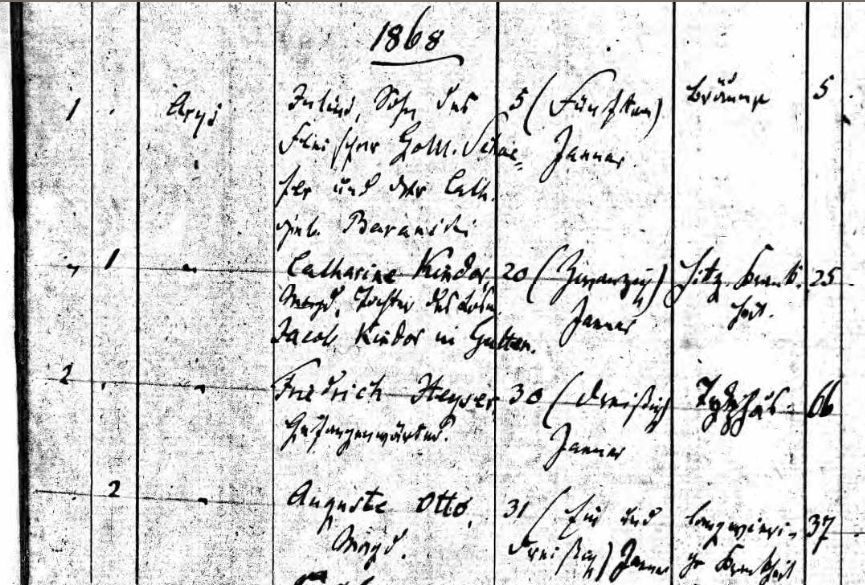 1868
1 Arys Julius, Sohn des 5 (Fünften) Bräune 5
Fleischer Gottl.
Januar
und der Cath.
geb. Baranski
1 Catharine Kindor, 20 (Zwanzig) hitz. Krank- 25
Magd, Tochter des
Januar heit.
Jacob Kindor in Gutten.
2 Friedrich Heyser, 30 (Dreißig) Typhus 66
Gefangenwärter.
Januar
2 Auguste Otto, 31 (Ein und langwieri- 37
Magd. Dreißig) Januar ge Krankheit